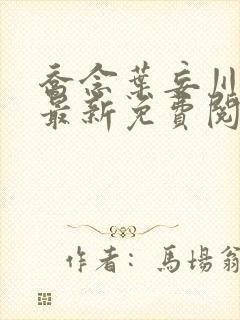 喬念葉妄川
最新免費閱
作者：馬場翁